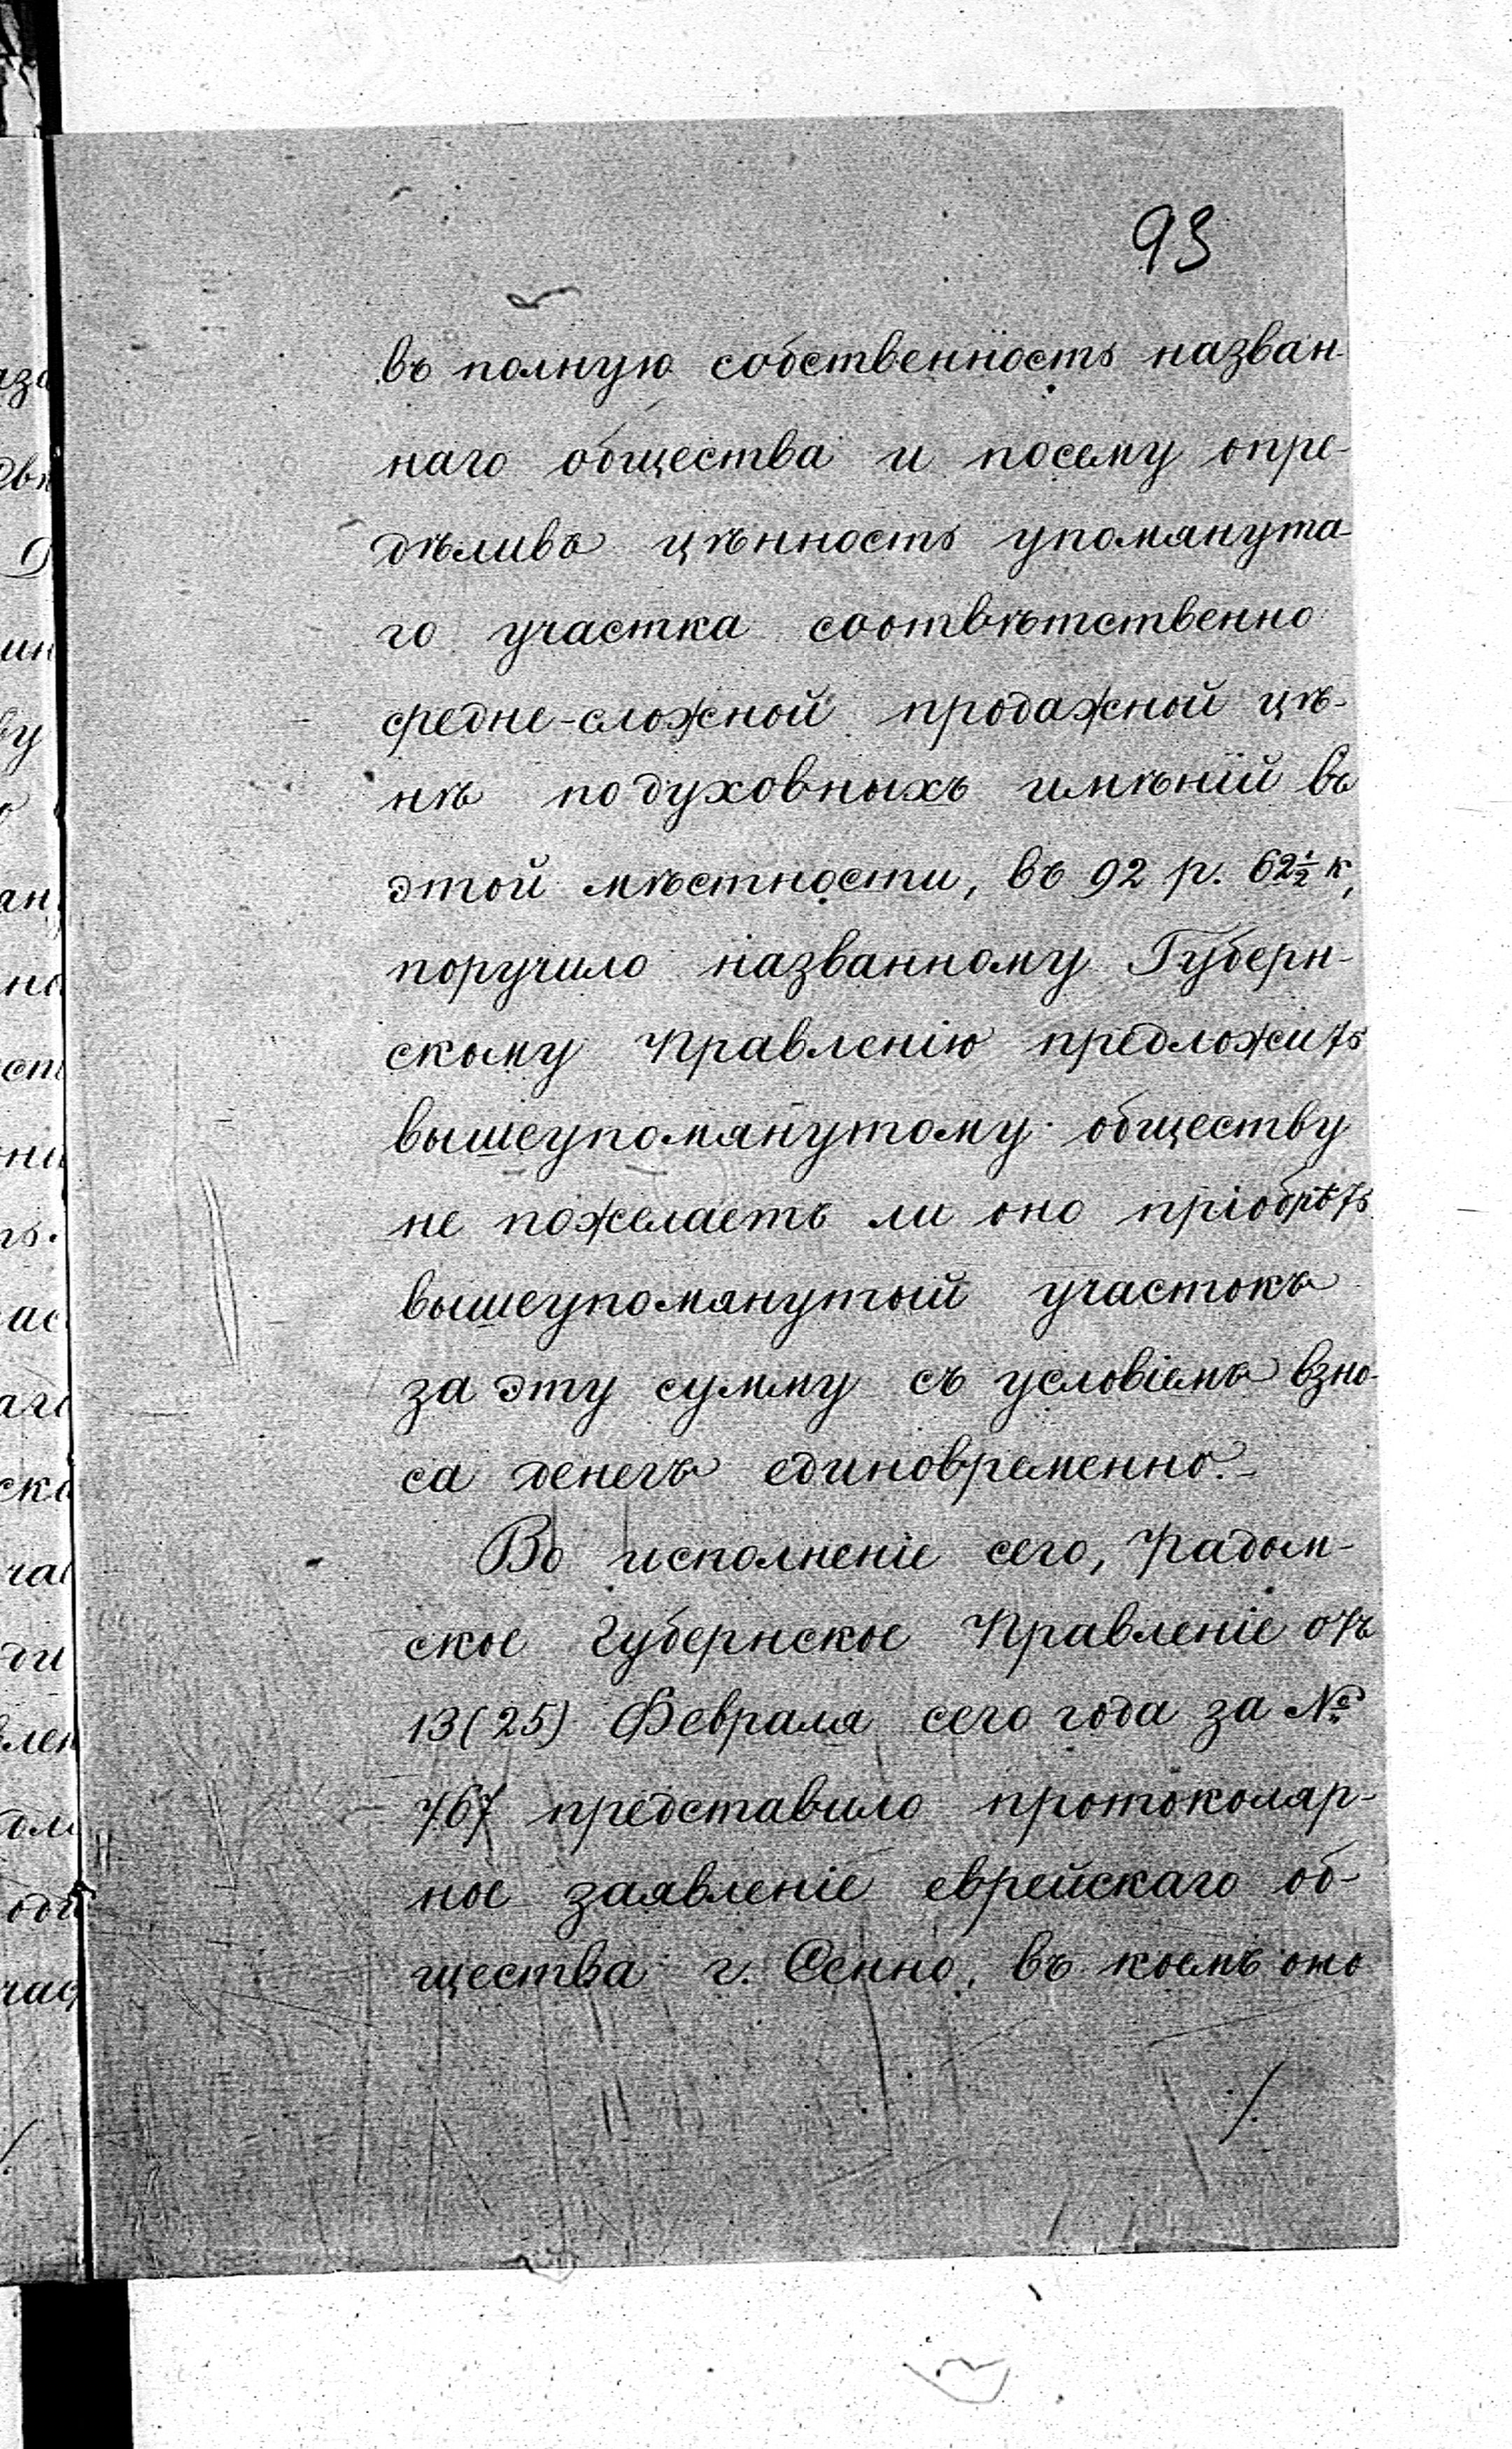 93
въ полную собственность назван-
наго общества и посему опре-
дѣливъ цѣнность упомянута-
го участка соотвѣтственно
средне-сложной продажной цѣ-
нѣ подуховныхъ имѣній въ
этой мѣстности, въ 92 р. 62½ к,
поручило названному Губерн-
скому Правленію предложить
вышеупомянутому обществу
не пожелаетъ ли оно пріобрѣть
вышеупомянутый участокъ
за эту сумму съ условіемъ взно-
са денегъ единовременно.-
Во исполненіе сего, Радом-
ское Губернское Правленіе отъ
13(25) Февраля сего года за №
767 представило протоколяр-
ное заявленіе еврейскаго об-
щества г. Сенно, въ коемъ оно
/.